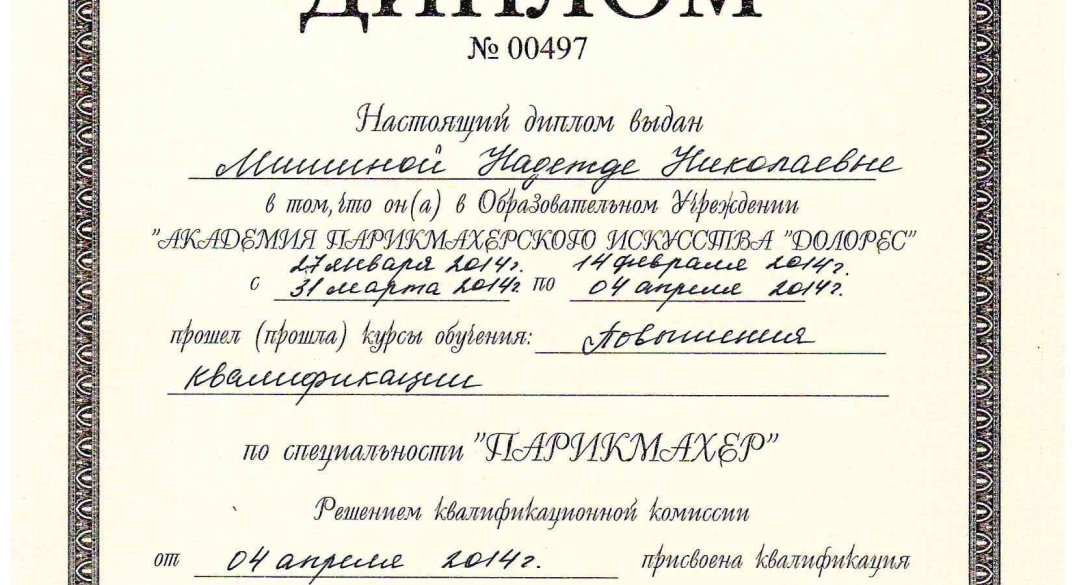 ДИПЛОМ
№ 00497
Настоящий диплом выдан
Мишиной Надежде Николаевне
в том, что он(а) в Образовательном Учреждении
"АКАДЕМИЯ ПАРИКМАХЕРСКОГО ИСКУССТВА "ДОЛОРЕС"
27 января 2014г. 14 февраля 2014г.
с 31 марта 2014г по 04 апреля 2014г.
прошел (прошла) курсы обучения: Повышения
квалификации
по специальности "ПАРИКМАХЕР"
Решением квалификационной комиссии
от 04 апреля 2014г. присвоена квалификация